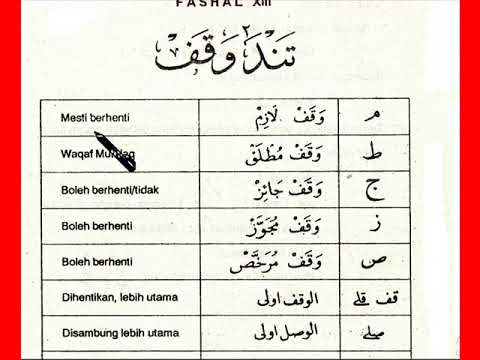 FASHAL XIII
تَنْدَ٢ وَقَفْ
Mesti berhenti وَقَفْ لَازِمْ م
Waqaf وَقَفْ مُطْلَقْ ط
Boleh berhenti/tidak وَقَفْ جَائِزْ ج
Boleh berhenti وَقَفْ مُجَوَّزْ ز
Boleh berhenti وَقَفْ مُرَخَّصْ ص
Dihentikan, lebih utama الوقف اولى قف قلے
Disambung lebih utama الوصل اولى صلے